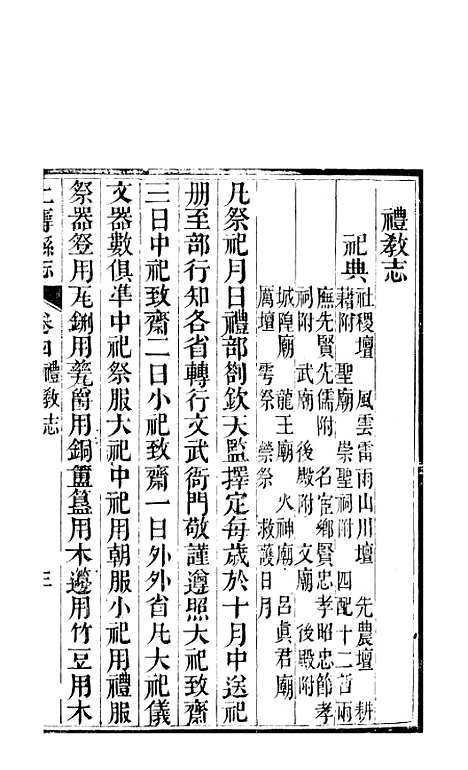 禮敎志
祀典
社稷壇 風雲雷雨山川壇 先農壇 耕
藉附 聖廟 崇聖祠附 四配十二哲兩
廡先賢先儒附 名宦鄉賢忠孝昭忠節孝
祠附 武廟 後殿附 文廟 後殿附
城隍廟 龍王廟 火神廟 呂眞君廟
厲壇 雩祭 禜祭 救護日月
凡祭祀月日禮部劄欽天監擇定每歲於十月中送祀
册至部行知各省轉行文武衙門敬謹遵照大祀致齋
三日中祀致齋二日小祀致齋一日外外省凡大祀儀
文器數俱準中祀祭服大祀中祀用朝服小祀用禮服
祭器登用瓦鉶用甆爵用銅簠簋用木籩用竹豆用木
縣志 卷四 禮敎志 三